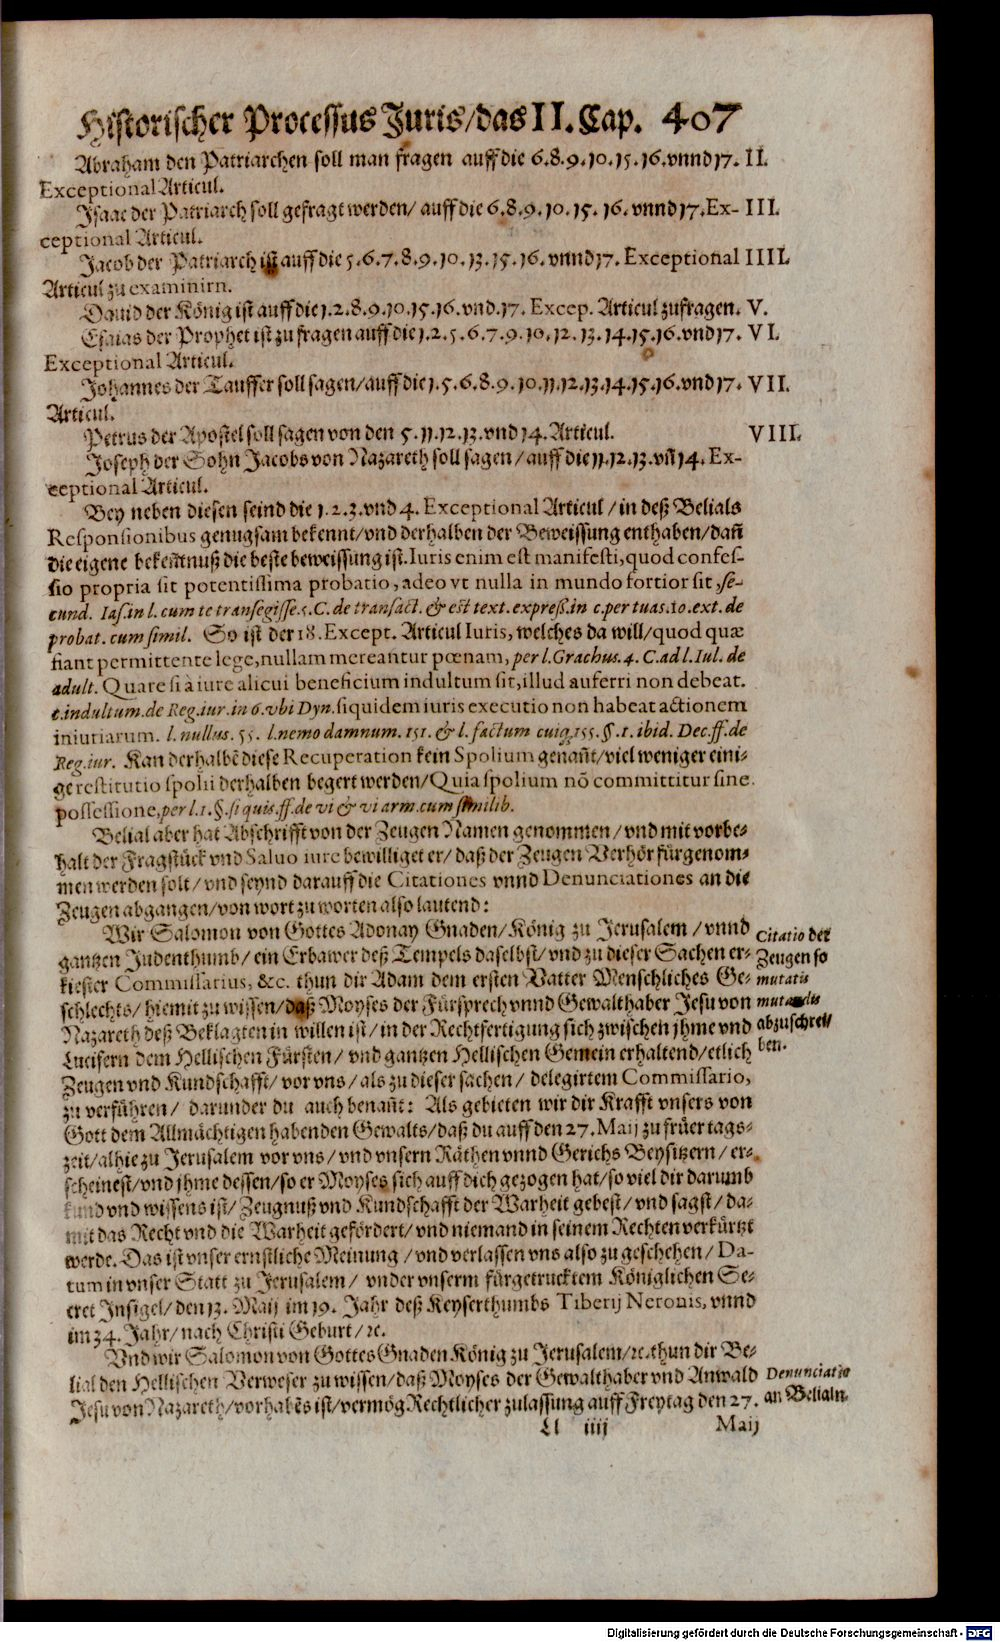 Historischer Processus Juris/das II. Cap. 407
Abraham den Patriarchen soll man fragen auff die 6.8.9.10.15.16.vnnd 17. II.
Exceptional Articul.
Isaac der Patriarch soll gefragt werden/ auff die 6.8.9.10.15.16.vnnd 17.Ex- III.
ceptional Articul.
Jacob der Patriarch ist auff die 5.6.7.8.9.10.13.15.16.vnnd 17. Exceptional IIII.
Articul zu examinirn.
Dauid der König ist auff die 1.2.8.9.10.15.16.vnd.17. Excep. Articul zufragen. V.
Esaias der Prophet ist zu fragen auff die 1.2.5.6.7.9.10.12.13.14.15.16.vnd 17. VI.
Exceptional Articul.
Johannes der Tauffer soll sagen/auff die 1.5.6.8.9.10.11.12.13.14.15.16.vnd 17. VII.
Articul.
Petrus der Apostel soll sagen von den 5.11.12.13.vnd 14. Articul. VIII.
Joseph der Sohn Jacobs von Nazareth soll sagen/auff die 11.12.13.vñ 14. Ex-
ceptional Articul.
Bey neben diesen seind die 1.2.3.vnd 4. Exceptional Articul/in deß Belials
Responsionibus genugsam bekennt/vnd derhalben der Beweissung enthaben/dañ
die eigene bekeñtnuß die beste beweissung ist. Iuris enim est manifesti,quod confes-
sio propria sit potentissima probatio, adeo vt nulla in mundo fortior sit, se-
cund. Ias.in l. cum te transegisse.5.C. de transact. & est text. expreß.in c.per tuas.10.ext. de
probat. cum simil. So ist der 18. Except. Articul Iuris, welches da will/quod quæ
fiant permittente lege,nullam mereantur pœnam, per l.Grachus.4.C.ad l.Iul. de
adult. Quare si à iure alicui beneficium indultum sit,illud auferri non debeat.
c.indultum.de Reg.iur.in 6.vbi Dyn.siquidem iuris executio non habeat actionem
iniuriarum. l.nullus.55. l.nemo damnum.151. & l.factum cuiq;155.§.1.ibid.Dec.ff.de
Reg.iur. Kan derhalbẽ diese Recuperation kein Spolium genañt/viel weniger eini-
ge restitutio spolii derhalben begert werden/Quia spolium nõ committitur sine
possessione,per l.1.§.si quis.ff.de vi & vi arm.cum similib.
Belial aber hat Abschrifft von der Zeugen Namen genommen/vnd mit vorbe-
halt der Fragstück vnd Saluo iure bewilliget er/daß der Zeugen Verhör fürgenom-
men werden solt/vnd seynd darauff die Citationes vnnd Denunciationes an die
Zeugen abgangen/von wort zu worten also lautend:
Wir Salomon von Gottes Adonay Gnaden/König zu Jerusalem/vnnd
gantzen Judenthumb/ein Erbawer deß Tempels daselbst/vnd zu dieser Sachen er-
kiester Commissarius, &c. thun dir Adam dem ersten Vatter Menschliches Ge-
schlechts/hiemit zu wissen/daß Moyses der Fürsprech vnnd Gewalthaber Jesu von
Nazareth deß Beklagten in willen ist/in der Rechtfertigung sich zwischen jhme vnd
Lucifern dem Hellischen Fürsten/vnd gantzen Hellischen Gemein erhaltend/etlich
Zeugen vnd Kundschafft/vor vns/als zu dieser sachen/delegirtem Commissario,
zu verführen/darunder du auch benañt: Als gebieten wir dir Krafft vnsers von
Gott dem Allmächtigen habenden Gewalts/daß du auff den 27.Maij zu früer tags-
zeit/alhie zu Jerusalem vor vns/vnd vnsern Räthen vnnd Gerichs Beysitzern/er-
scheinest/vnd jhme dessen/so er Moyses sich auff dich gezogen hat/so viel dir darumb
kund vnd wissens ist/Zeugnuß vnd Kundschafft der Warheit gebest/vnd sagst/da-
mit das Recht vnd die Warheit gefördert/vnd niemand in seinem Rechten verkürtzt
werde. Das ist vnser ernstliche Meinung/vnd verlassen vns also zu geschehen/Da-
tum in vnser Statt zu Jerusalem/vnder vnserm fürgetrucktem Königlichen Se-
cret Insigel/den 13. Maij im 19. Jahr deß Keyserthumbs Tiberij Neronis, vnnd
im 34.Jahr/nach Christi Geburt/ꝛc.
Citatio der
Zeugen so
mutatis
mutandis
abzuschrei/
ben.
Vnd wir Salomon von Gottes Gnaden König zu Jerusalem/ꝛc.thun dir Be-
lial den Hellischen Verweser zu wissen/daß Moyses der Gewalthaber vnd Anwald
Jesu von Nazareth/vorhabẽs ist/vermög Rechtlicher zulassung auff Freytag den 27.
Denunciatio
an Belialn.
Ll iiij Maij
Digitalisierung gefördert durch die Deutsche Forschungsgemeinschaft - DFG